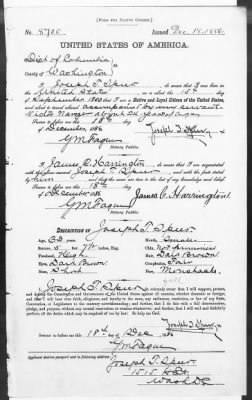 [FORM FOR NATIVE CITIZEN.]
No. 8706 Issued Dec. 18, 1886
UNITED STATES OF AMERICA.
Dist. of Columbia
County of Washington
I, Joseph T. Spear, do swear that I was born in the
United States, on or about the 15th day of
September 1863 that I am a Native and Loyal Citizen of the United States,
and about to travel abroad accompanied by my servant
about 24 years of age
Sworn to before me this 18th day
of December 1886
Joseph T. Spear
Notary Public.
I, James C. Harrington, do swear that I am acquainted
with Joseph T. Spear and with the facts stated
by him and that the same are true to the best of my knowledge and belief.
Sworn to before me this 18th day
of December 1886
James C. Harrington
Notary Public.
DESCRIPTION OF Joseph T. Spear
Age, 23 years Mouth, Small
Stature, 5 feet inches, Eng. Chin,
Forehead, High Hair, Dark Brown
Eyes, Dark Brown Complexion, Fair
Nose, Short Face,
I, Joseph T. Spear, do solemnly swear that I will support, protect,
and defend the Constitution and Government of the United States against all enemies, whether domestic or foreign;
and that I will bear true faith, allegiance, and loyalty to the same, any ordinance, resolution, or law of any State,
Convention, or Legislature to the contrary notwithstanding; and further, that I do this with a full determination,
pledge, and purpose, without any mental reservation or evasion whatsoever; and further, that I will well and faithfully
perform all the duties which may be required of me by law. So help me God.
Joseph T. Spear
Sworn to before me this 18th day Dec 1886
Notary Public.
Applicant desires passport sent to following address:
Joseph T. Spear
1515
Wash D.C.